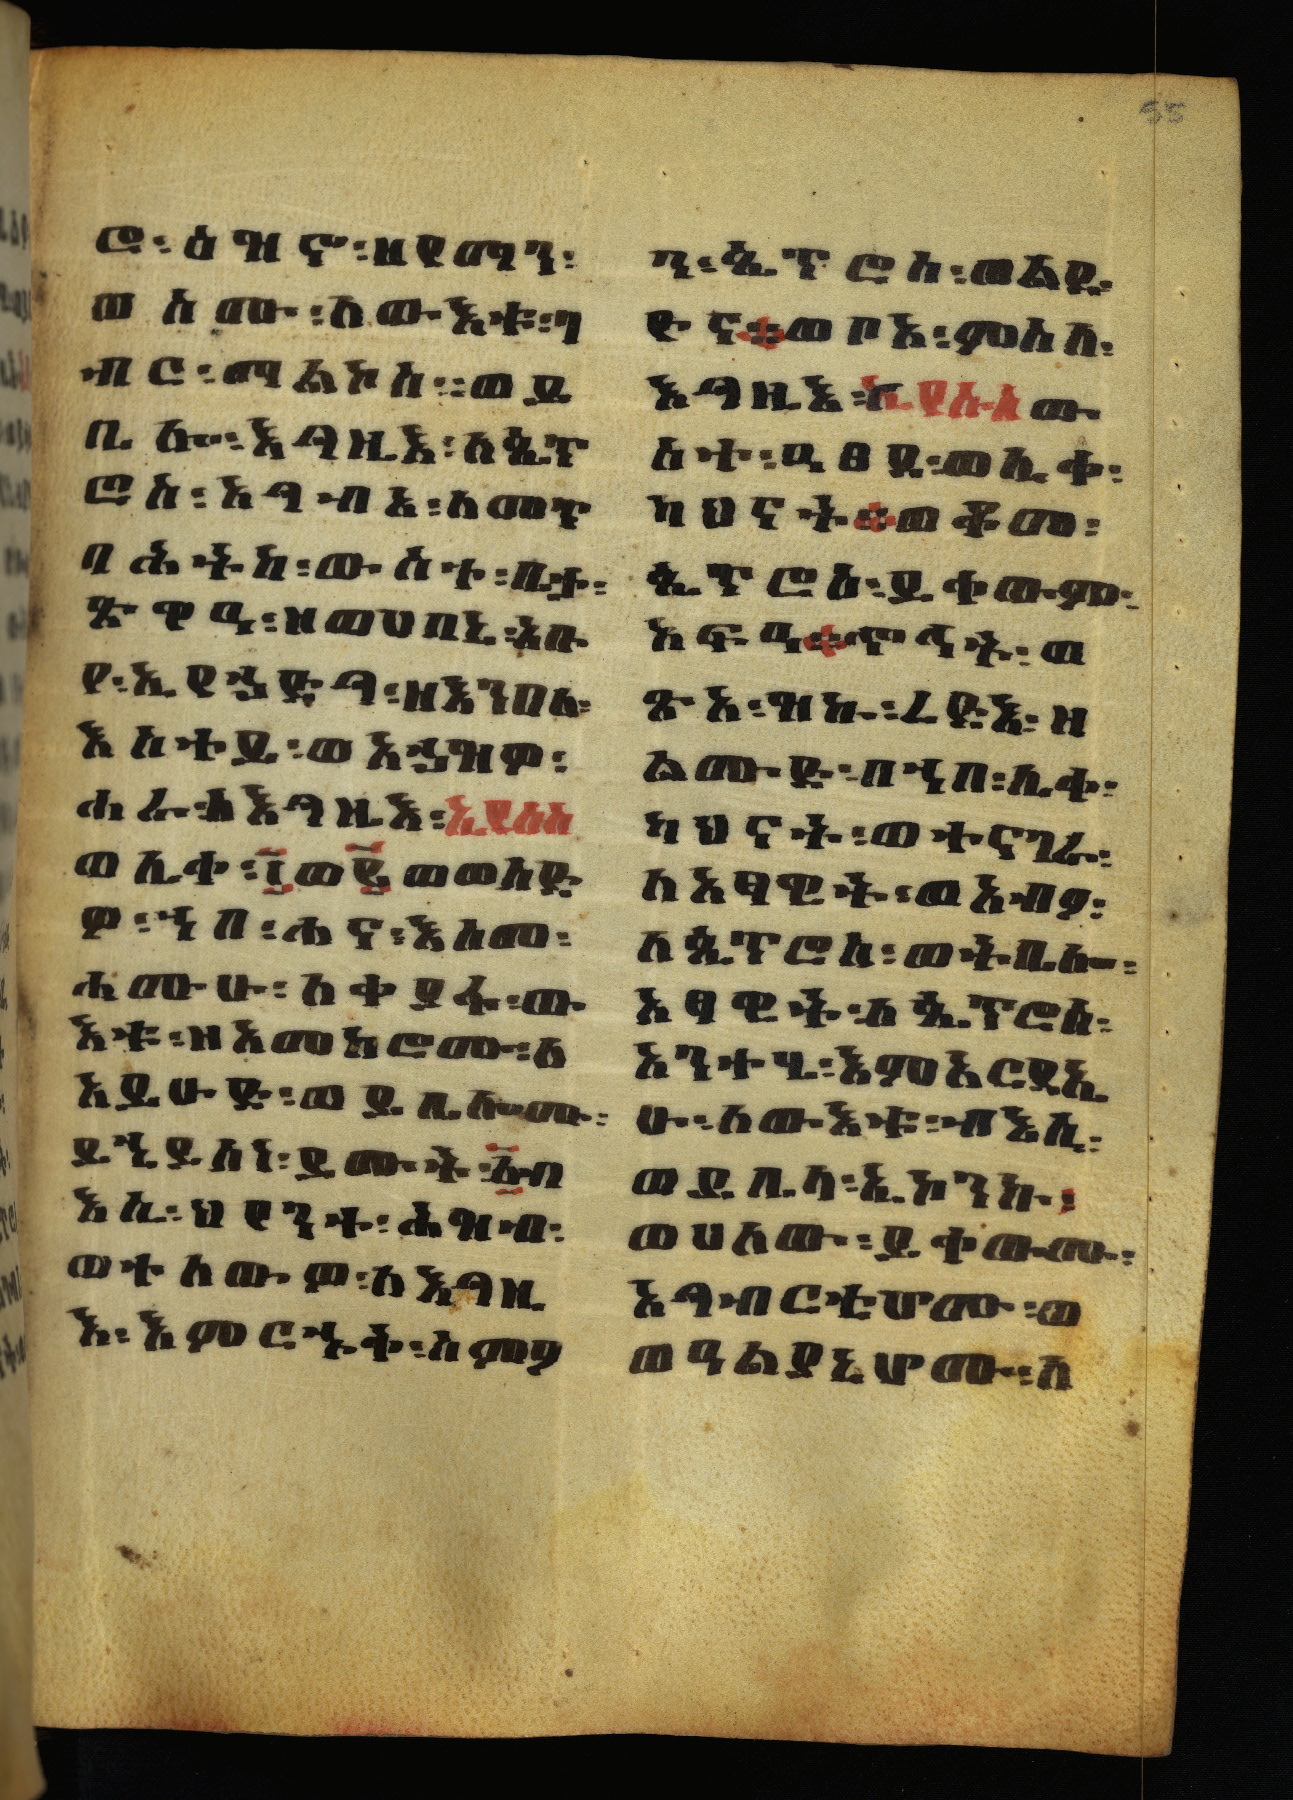 ሮ፡ዕዝኖ፡ዘየማን፡
ወስሙ፡ለውእቱ፡ገ
ብር፡ማልኮስ፡፡ወይ
ቤሎ፡እግዚእ፡ለጴጥ
ሮስ፡አግብእ፡ለመጥ
ባሕትከ፡ውስተ፡ቤታ፡
ጽዋዓ፡ዘወሀበኒ፡አቡ
የ፡ኢየኀድግ፡ዘእንበለ፡
እስተይ፡ወአኀዝዎ፡
ሐራ፡ለእግዚእ፡ኢየሱስ
ወሊቀ፡፲ወ፪ወወሰድ
ዎ፡ኀበ፡ሐና፡እስመ፡
ሐሙሁ፡ለቀያፋ፡ው
እቱ፡ዘአመክሮሙ፡ለ
አይሁድ፡ወይቤሎሙ፡
ይኄይሰነ፡ይሙት፡፩ብ
እሲ፡ህየንተ፡ሕዝብ፡
ወተለውዎ፡ለእግዚ
እ፡እምርኁቅ፡ስምዖ
ን፡ጴጥሮስ፡ወልደ፡
ዮና፡፡ወቦአ፡ምስለ፡
እግዚእ፡ኢየሱስው
ስተ፡ዓፀደ፡ወሊቀ፡
ካህናት፡፡ወቆመ፡
ጴጥሮስ፡ይቀውም፡
አፍዓ፡፡ጥቃት፡ወ
ጽአ፡ዝኩ፡ረድእ፡ዘ
ልሙድ፡በኀበ፡ሊቀ፡
ካህናት፡ወተናገራ፡
ለአፃዊት፡ወአብዖ፡
ለጴጥሮስ፡ወትቤሎ፡
አፃዊት፡ለጴጥሮስ፡
አንተሂ፡እምአርዳኢ
ሁ፡ለውእቱ፡ብእሲ፡
ወይቤላ፡ኢኮንኩ፡
ወሀለው፡ይቀውሙ፡
አግብርቲሆሙ፡ወ
ወዓልያኒሆሙ፡ለ
55